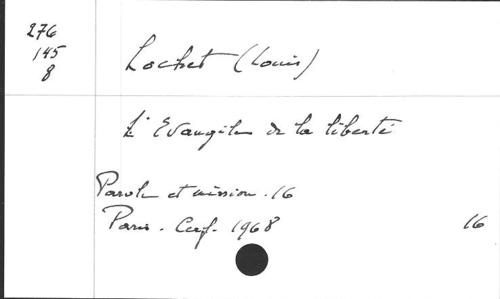 276
145
8
Lochet (Louis)
L'Evangile de la liberté
Parole et mission. 16
Paris. Cerf. 1968
16